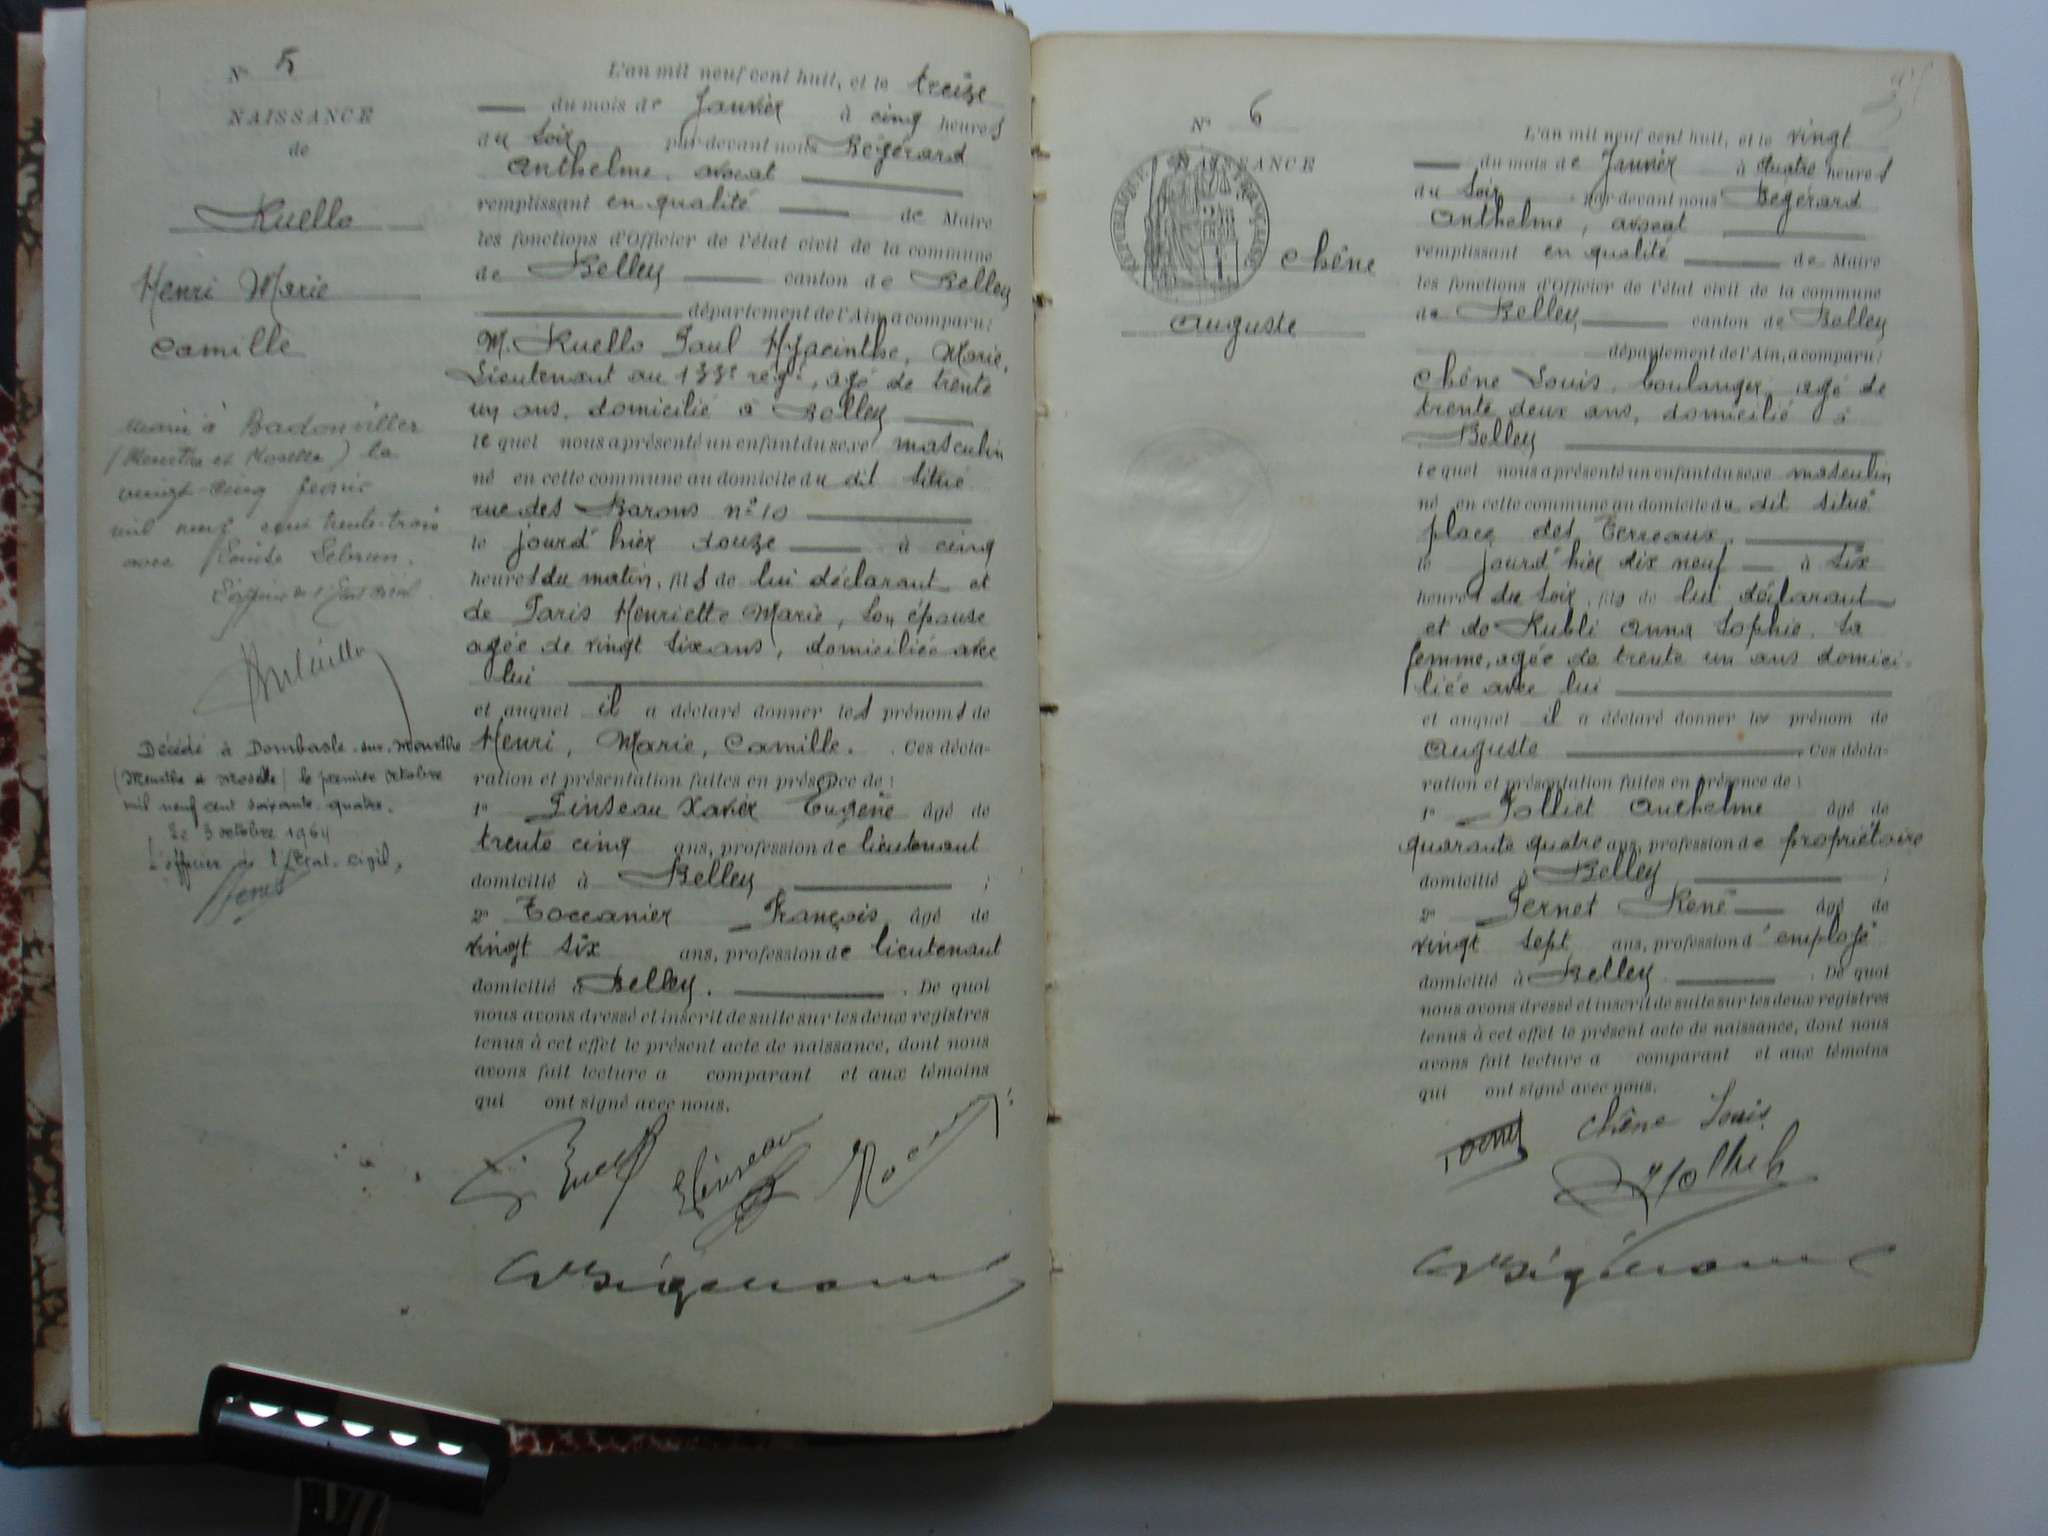 N° 5
NAISSANCE
de
Ruello
Henri Marie
Camille
marié à Badonviller
(Meurthe et Moselle) le
vingt-cinq
mil neuf cent trente-trois
avec Louise Lebrun.
L'officier de l'Etat civil.
Décédé à Dombasle-sur-Meurthe
(Meurthe & Moselle) le premier octobre
mil neuf cent soixante quatre.
Le 3 octobre 1964
L'officier de l'Etat-civil,
L'an mil neuf cent huit, et le treize
du mois de Janvier à cinq heures
du soir par-devant nous Bégérard
Anthelme, avocat
remplissant en qualité de Maire
les fonctions d'Officier de l'état civil de la commune
de Belley canton de Belley
département de l'Ain, a comparu :
M. Ruello Paul Hyacinthe, Marie,
Lieutenant au 133e régt, agé de trente
un ans, domicilié à Belley
lequel nous a présenté un enfant du sexe masculin
né en cette commune au domicile du dit situé
rue des Barons n° 10
le jourd'hier douze à cinq
heures du matin, fils de lui déclarant et
de Paris Henriette Marie, son épouse
agée de vingt six ans, domiciliée avec
lui
et auquel il a déclaré donner les prénoms de
Henri, Marie, Camille. Ces décla-
ration et présentation faites en présence de :
1° Pinseau Xavier Eugène âgé de
trente cinq ans, profession de lieutenant
domicilié à Belley ;
2° Toccanier François âgé de
vingt six ans, profession de lieutenant
domicilié à Belley. De quoi
nous avons dressé et inscrit de suite sur les deux registres
tenus à cet effet le présent acte de naissance, dont nous
avons fait lecture a comparant et aux témoins
qui ont signé avec nous.
Pinseau
N° 6
NAISSANCE
Chêne
Auguste
L'an mil neuf cent huit, et le vingt
du mois de Janvier à quatre heures
du soir par-devant nous Bégérard
Anthelme, avocat
remplissant en qualité de Maire
les fonctions d'Officier de l'état civil de la commune
de Belley canton de Belley
département de l'Ain, a comparu :
Chêne Louis, boulanger, agé de
trente deux ans, domicilié à
Belley
lequel nous a présenté un enfant du sexe masculin
né en cette commune au domicile du dit situé
place des Terreaux
le jourd'hier dix neuf à six
heures du soir, fils de lui déclarant
et de Kubli Anna Sophie, sa
femme, agée de trente un ans domici-
liée avec lui
et auquel il a déclaré donner le prénom de
Auguste Ces décla-
ration et présentation faites en présence de :
1° Jolliet Anthelme âgé de
quarante quatre ans, profession de propriétaire
domicilié à Belley ;
2° Pernet René âgé de
vingt sept ans, profession d'employé
domicilié à Belley. De quoi
nous avons dressé et inscrit de suite sur les deux registres
tenus à cet effet le présent acte de naissance, dont nous
avons fait lecture a comparant et aux témoins
qui ont signé avec nous.
Chêne Louis